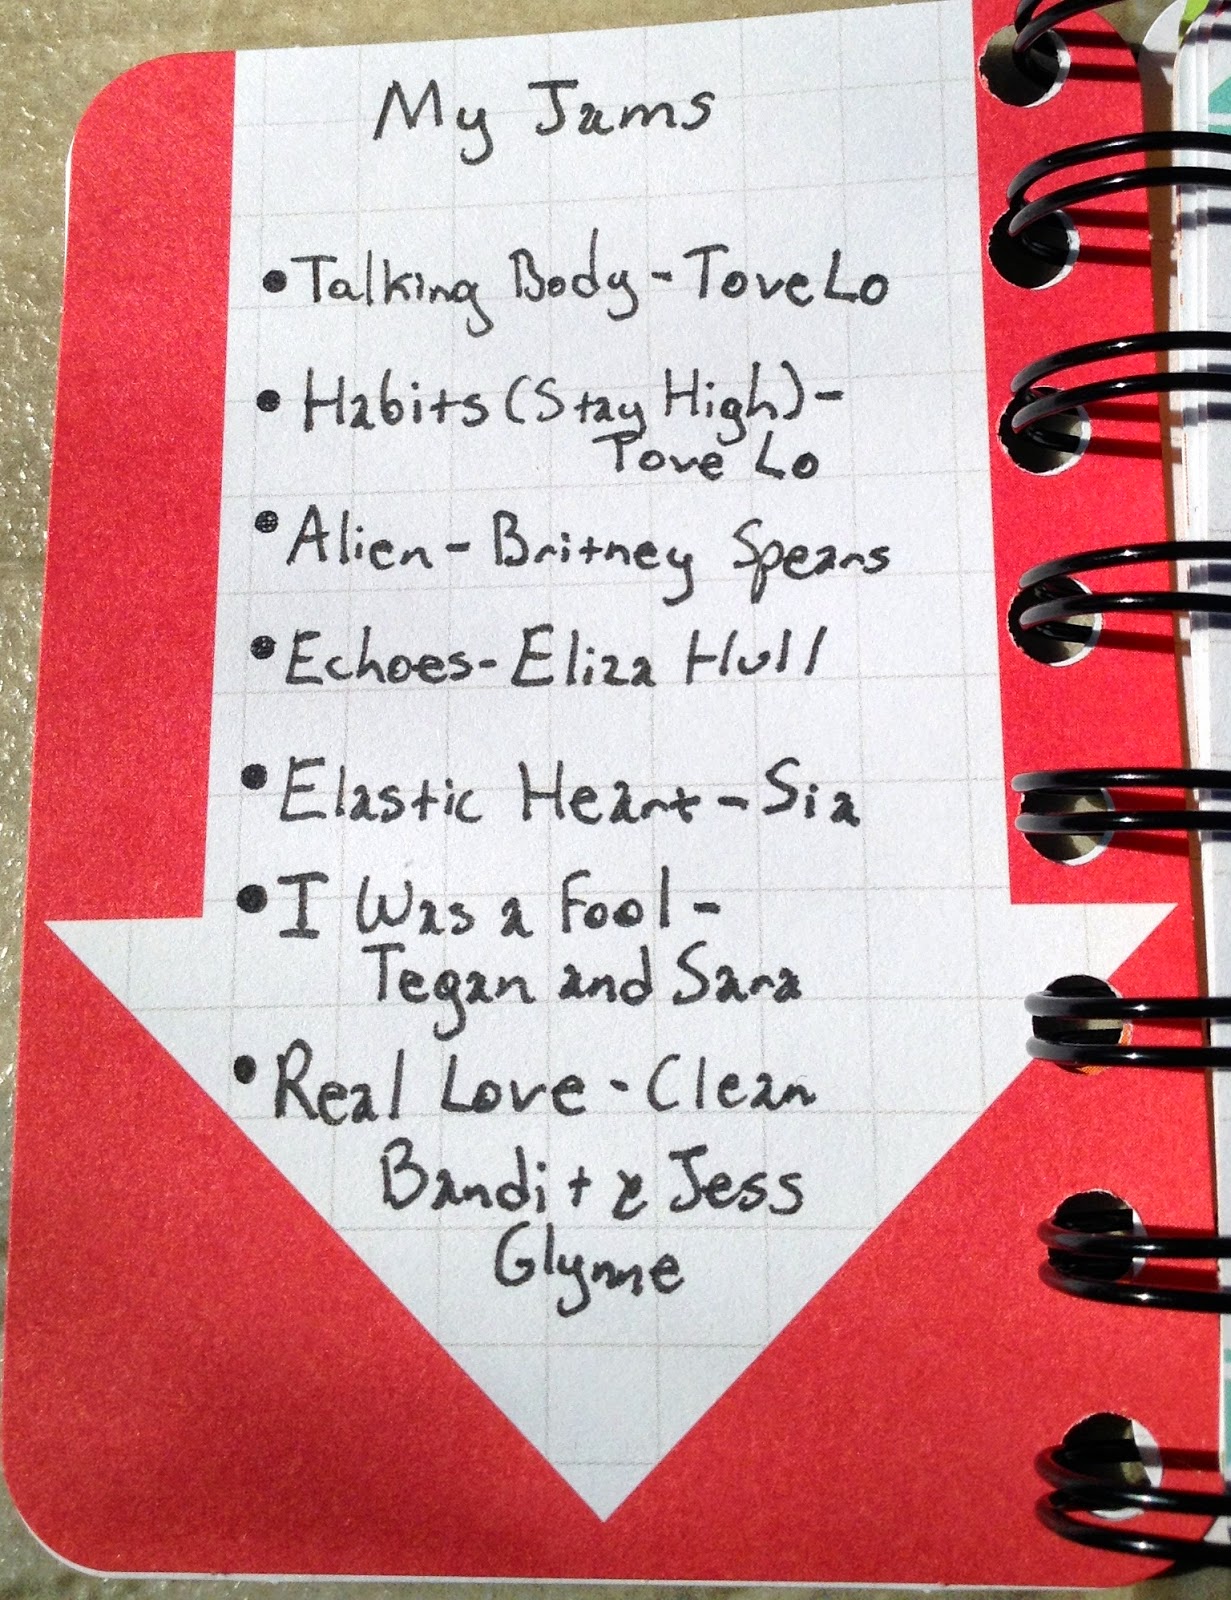 My Jams
• Talking Body - Tove Lo
• Habits (Stay High) -
Tove Lo
• Alien - Britney Spears
• Echoes - Eliza Hull
• Elastic Heart - Sia
• I Was a Fool -
Tegan and Sara
• Real Love - Clean
Bandit & Jess
Glynne